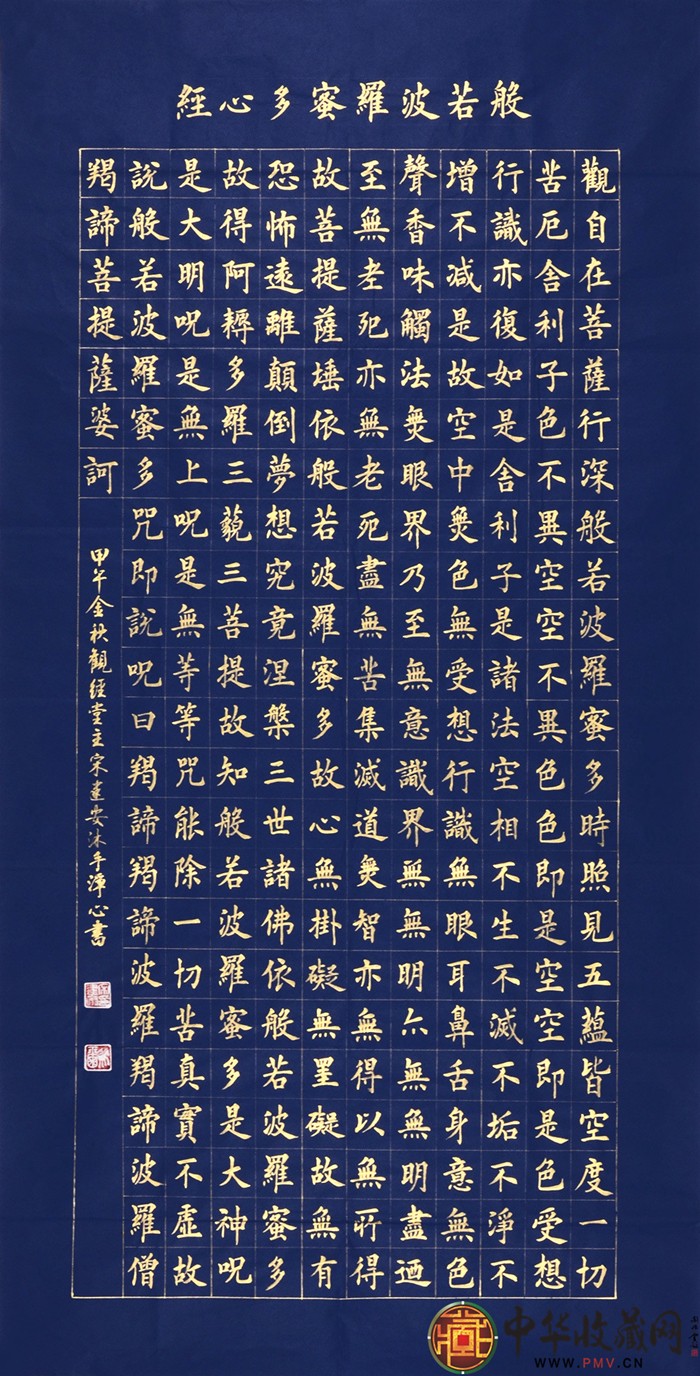 般若波羅蜜多心經
觀自在菩薩行深般若波羅蜜多時照見五蘊皆空度一切
苦厄舍利子色不異空空不異色色即是空空即是色受想
行識亦復如是舍利子是諸法空相不生不滅不垢不淨不
增不减是故空中無色無受想行識無眼耳鼻舌身意無色
聲香味觸法無眼界乃至無意識界無無明亦無無明盡迺
至無老死亦無老死盡無苦集滅道無智亦無得以無所得
故菩提薩埵依般若波羅蜜多故心無掛礙無罣礙故無有
恐怖遠離顛倒夢想究竟涅槃三世諸佛依般若波羅蜜多
故得阿耨多羅三藐三菩提故知般若波羅蜜多是大神呪
是大明呪是無上呪是無等等咒能除一切苦真實不虛故
說般若波羅蜜多咒即說呪曰羯諦羯諦波羅羯諦波羅僧
羯諦菩提薩婆訶
甲午金秋觀經堂主宋建安沐手淨心書
中华收藏网
WWW.PMV.CN